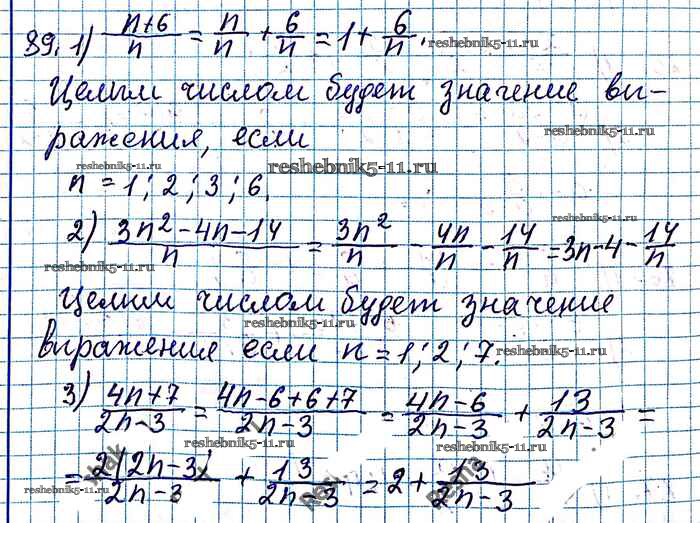 89. 1) (n+6)/n = n/n + 6/n = 1 + 6/n.
reshebnik5-11.ru
Целым числом будет значение вы-
reshebnik5-11.ru
ражения, если
reshebnik5-11.ru
reshebnik5-11.ru
n = 1; 2; 3; 6.
reshebnik5-11.ru
2) (3n²-4n-14)/n = 3n²/n - 4n/n - 14/n = 3n-4-14/n
reshebnik5-11.ru
Целым числом будет значение
reshebnik5-11.ru
выражения если n = 1; 2; 7.
reshebnik5-11.ru
reshebnik5-11.ru
3) (4n+7)/(2n-3) = (4n-6+6+7)/(2n-3) = (4n-6)/(2n-3) + 13/(2n-3) =
reshebnik5-11.ru
= 2(2n-3)/(2n-3) + 13/(2n-3) = 2 + 13/(2n-3)
reshebnik5-11.ru